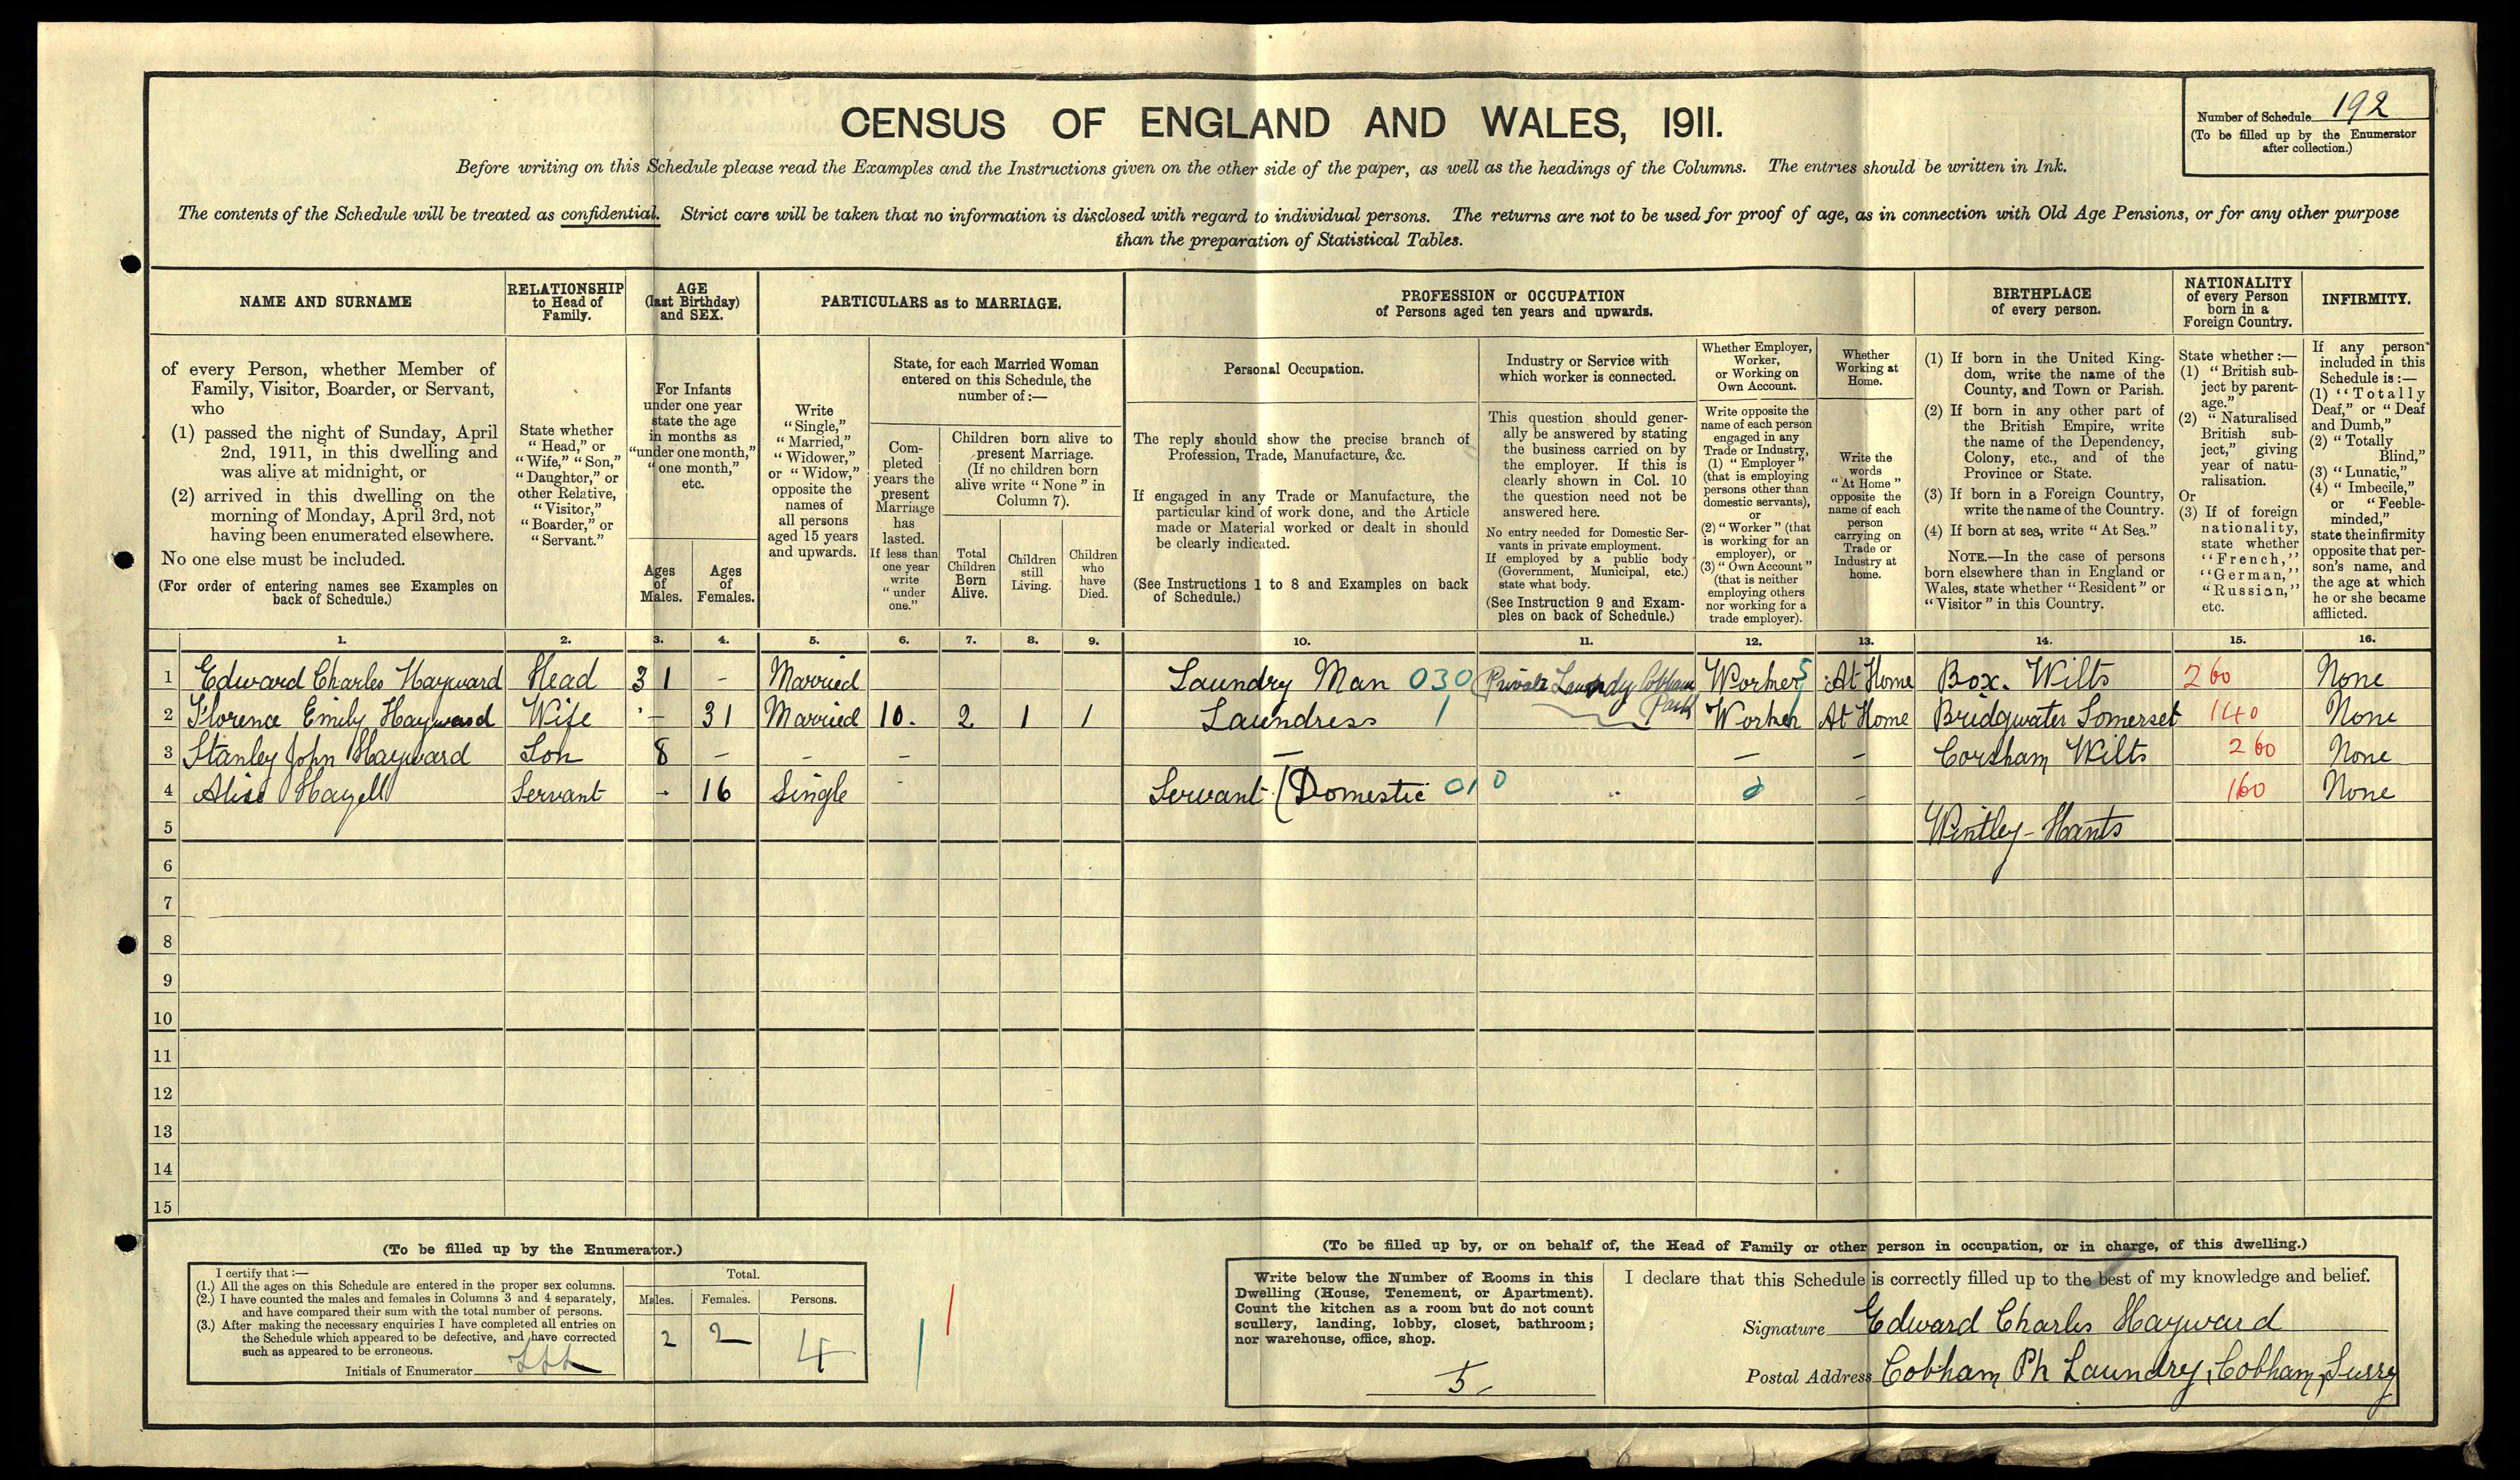 CENSUS OF ENGLAND AND WALES, 1911.
Number of Schedule 192
(To be filled up by the Enumerator
after collection.)
Before writing on this Schedule please read the Examples and the Instructions given on the other side of the paper, as well as the headings of the Columns. The entries should be written in Ink.
The contents of the Schedule will be treated as confidential. Strict care will be taken that no information is disclosed with regard to individual persons. The returns are not to be used for proof of age, as in connection with Old Age Pensions, or for any other purpose
than the preparation of Statistical Tables.
NAME AND SURNAME
of every Person, whether Member of
Family, Visitor, Boarder, or Servant,
who
(1) passed the night of Sunday, April
2nd, 1911, in this dwelling and
was alive at midnight, or
(2) arrived in this dwelling on the
morning of Monday, April 3rd, not
having been enumerated elsewhere.
No one else must be included.
(For order of entering names see Examples on
back of Schedule.)
RELATIONSHIP
to Head of
Family.
State whether
"Head," or
"Wife," "Son,"
"Daughter," or
other Relative,
"Visitor,"
"Boarder," or
"Servant."
AGE
(last Birthday)
and SEX.
For Infants
under one year
state the age
in months as
"under one month,"
"one month,"
etc.
Ages
of
Males.
Ages
of
Females.
PARTICULARS as to MARRIAGE.
Write
"Single,"
"Married,"
"Widower,"
or "Widow,"
opposite the
names of
all persons
aged 15 years
and upwards.
State, for each Married Woman
entered on this Schedule, the
number of:—
Com-
pleted
years the
present
Marriage
has
lasted.
If less than
one year
write
"under
one."
Children born alive to
present Marriage.
(If no children born
alive write "None" in
Column 7).
Total
Children
Born
Alive.
Children
still
Living.
Children
who
have
Died.
PROFESSION or OCCUPATION
of Persons aged ten years and upwards.
Personal Occupation.
The reply should show the precise branch of
Profession, Trade, Manufacture, &c.
If engaged in any Trade or Manufacture, the
particular kind of work done, and the Article
made or Material worked or dealt in should
be clearly indicated.
(See Instructions 1 to 8 and Examples on back
of Schedule.)
Industry or Service with
which worker is connected.
This question should gener-
ally be answered by stating
the business carried on by
the employer. If this is
clearly shown in Col. 10
the question need not be
answered here.
No entry needed for Domestic Ser-
vants in private employment.
If employed by a public body
(Government, Municipal, etc.)
state what body.
(See Instruction 9 and Exam-
ples on back of Schedule.)
Whether Employer,
Worker,
or Working on
Own Account.
Write opposite the
name of each person
engaged in any
Trade or Industry,
(1) "Employer"
(that is employing
persons other than
domestic servants),
or
(2) "Worker" (that
is working for an
employer), or
(3) "Own Account"
(that is neither
employing others
nor working for a
trade employer).
Whether
Working at
Home.
Write the
words
"At Home"
opposite the
name of each
person
carrying on
Trade or
Industry at
home.
BIRTHPLACE
of every person.
(1) If born in the United King-
dom, write the name of the
County, and Town or Parish.
(2) If born in any other part of
the British Empire, write
the name of the Dependency,
Colony, etc., and of the
Province or State.
(3) If born in a Foreign Country,
write the name of the Country.
(4) If born at sea, write "At Sea."
NOTE.—In the case of persons
born elsewhere than in England or
Wales, state whether "Resident" or
"Visitor" in this Country.
NATIONALITY
of every Person
born in a
Foreign Country.
State whether:—
(1) "British sub-
ject by parent-
age."
(2) "Naturalised
British sub-
ject," giving
year of natu-
ralisation.
Or
(3) If of foreign
nationality,
state whether
"French,"
"German,"
"Russian,"
etc.
INFIRMITY.
If any person
included in this
Schedule is:—
(1) "Totally
Deaf," or "Deaf
and Dumb,"
(2) "Totally
Blind,"
(3) "Lunatic,"
(4) "Imbecile,"
or "Feeble-
minded,"
state the infirmity
opposite that per-
son's name, and
the age at which
he or she became
afflicted.
1. 2. 3. 4. 5. 6. 7. 8. 9. 10. 11. 12. 13. 14. 15. 16.
1 Edward Charles Hayward Head 31 - Married Laundry Man 030 Private Laundry Cobham Park Worker 5 At Home Box. Wilts 260 None
2 Florence Emily Hayward Wife - 31 Married 10. 2 1 1 Laundress 1 Worker At Home Bridgwater Somerset 140 None
3 Stanley John Hayward Son 8 - - - - - - Corsham Wilts 260 None
4 Alise Hazell Servant - 16 Single - Servant (Domestic 010 " 0 - 160 None
5 Wintley - Hants
6
7
8
9
10
11
12
13
14
15
(To be filled up by the Enumerator.)
I certify that:—
(1.) All the ages on this Schedule are entered in the proper sex columns.
(2.) I have counted the males and females in Columns 3 and 4 separately,
and have compared their sum with the total number of persons.
(3.) After making the necessary enquiries I have completed all entries on
the Schedule which appeared to be defective, and have corrected
such as appeared to be erroneous.
Initials of Enumerator
Total.
Males. Females. Persons.
2 2 4
(To be filled up by, or on behalf of, the Head of Family or other person in occupation, or in charge, of this dwelling.)
Write below the Number of Rooms in this
Dwelling (House, Tenement, or Apartment).
Count the kitchen as a room but do not count
scullery, landing, lobby, closet, bathroom;
nor warehouse, office, shop.
5
I declare that this Schedule is correctly filled up to the best of my knowledge and belief.
Signature Edward Charles Hayward
Postal Address Cobham Pk Laundry, Cobham, Surry